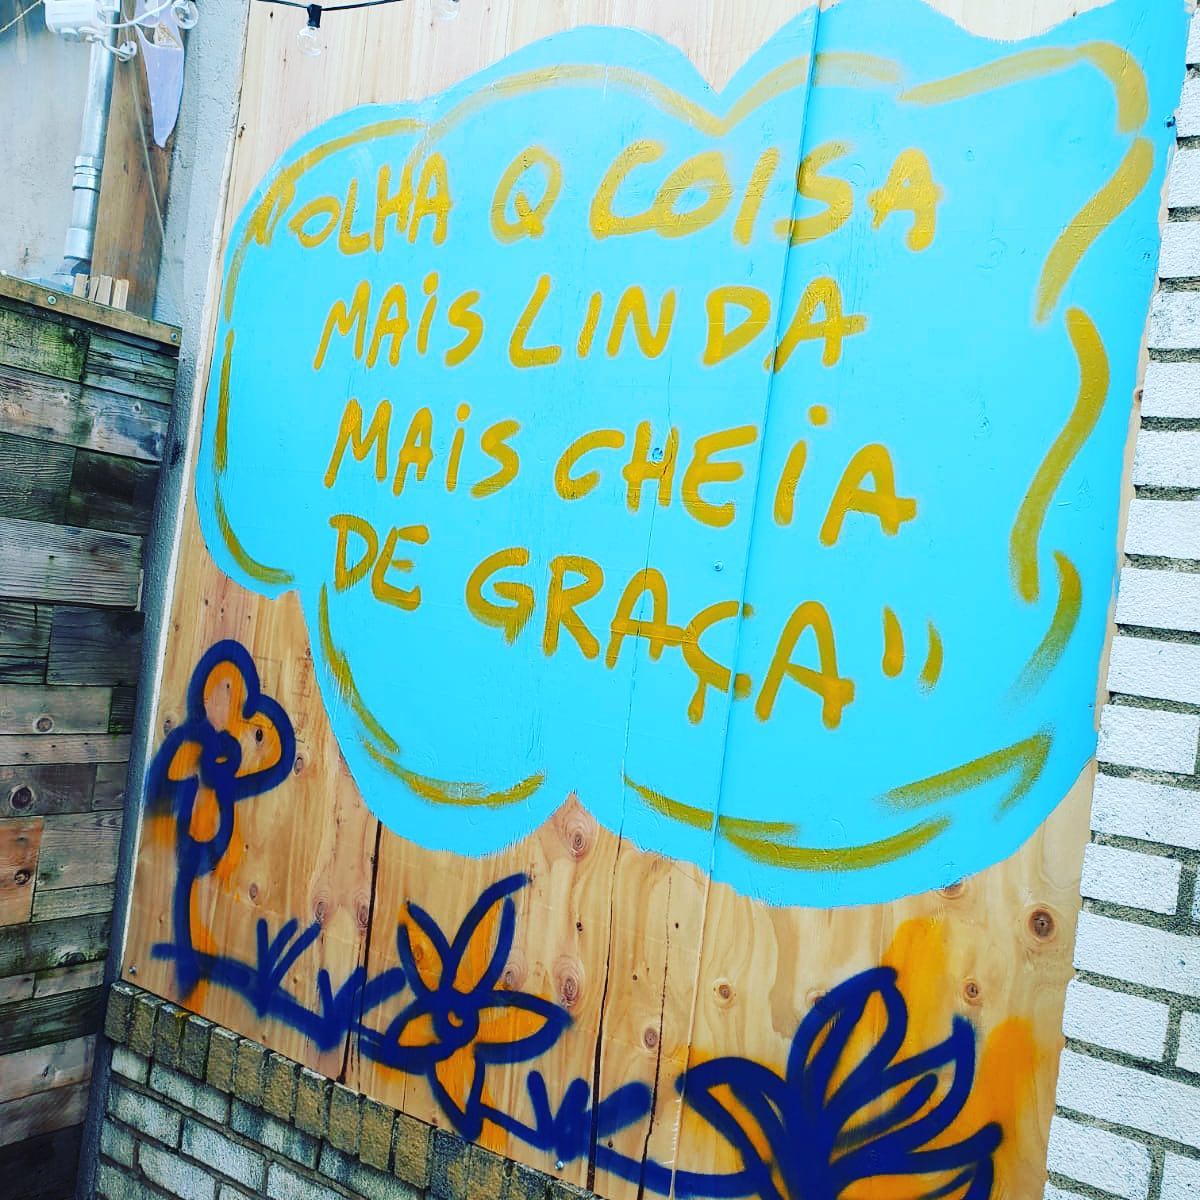 "OLHA Q COISA
MAIS LINDA
MAIS CHEIA
DE GRAÇA"